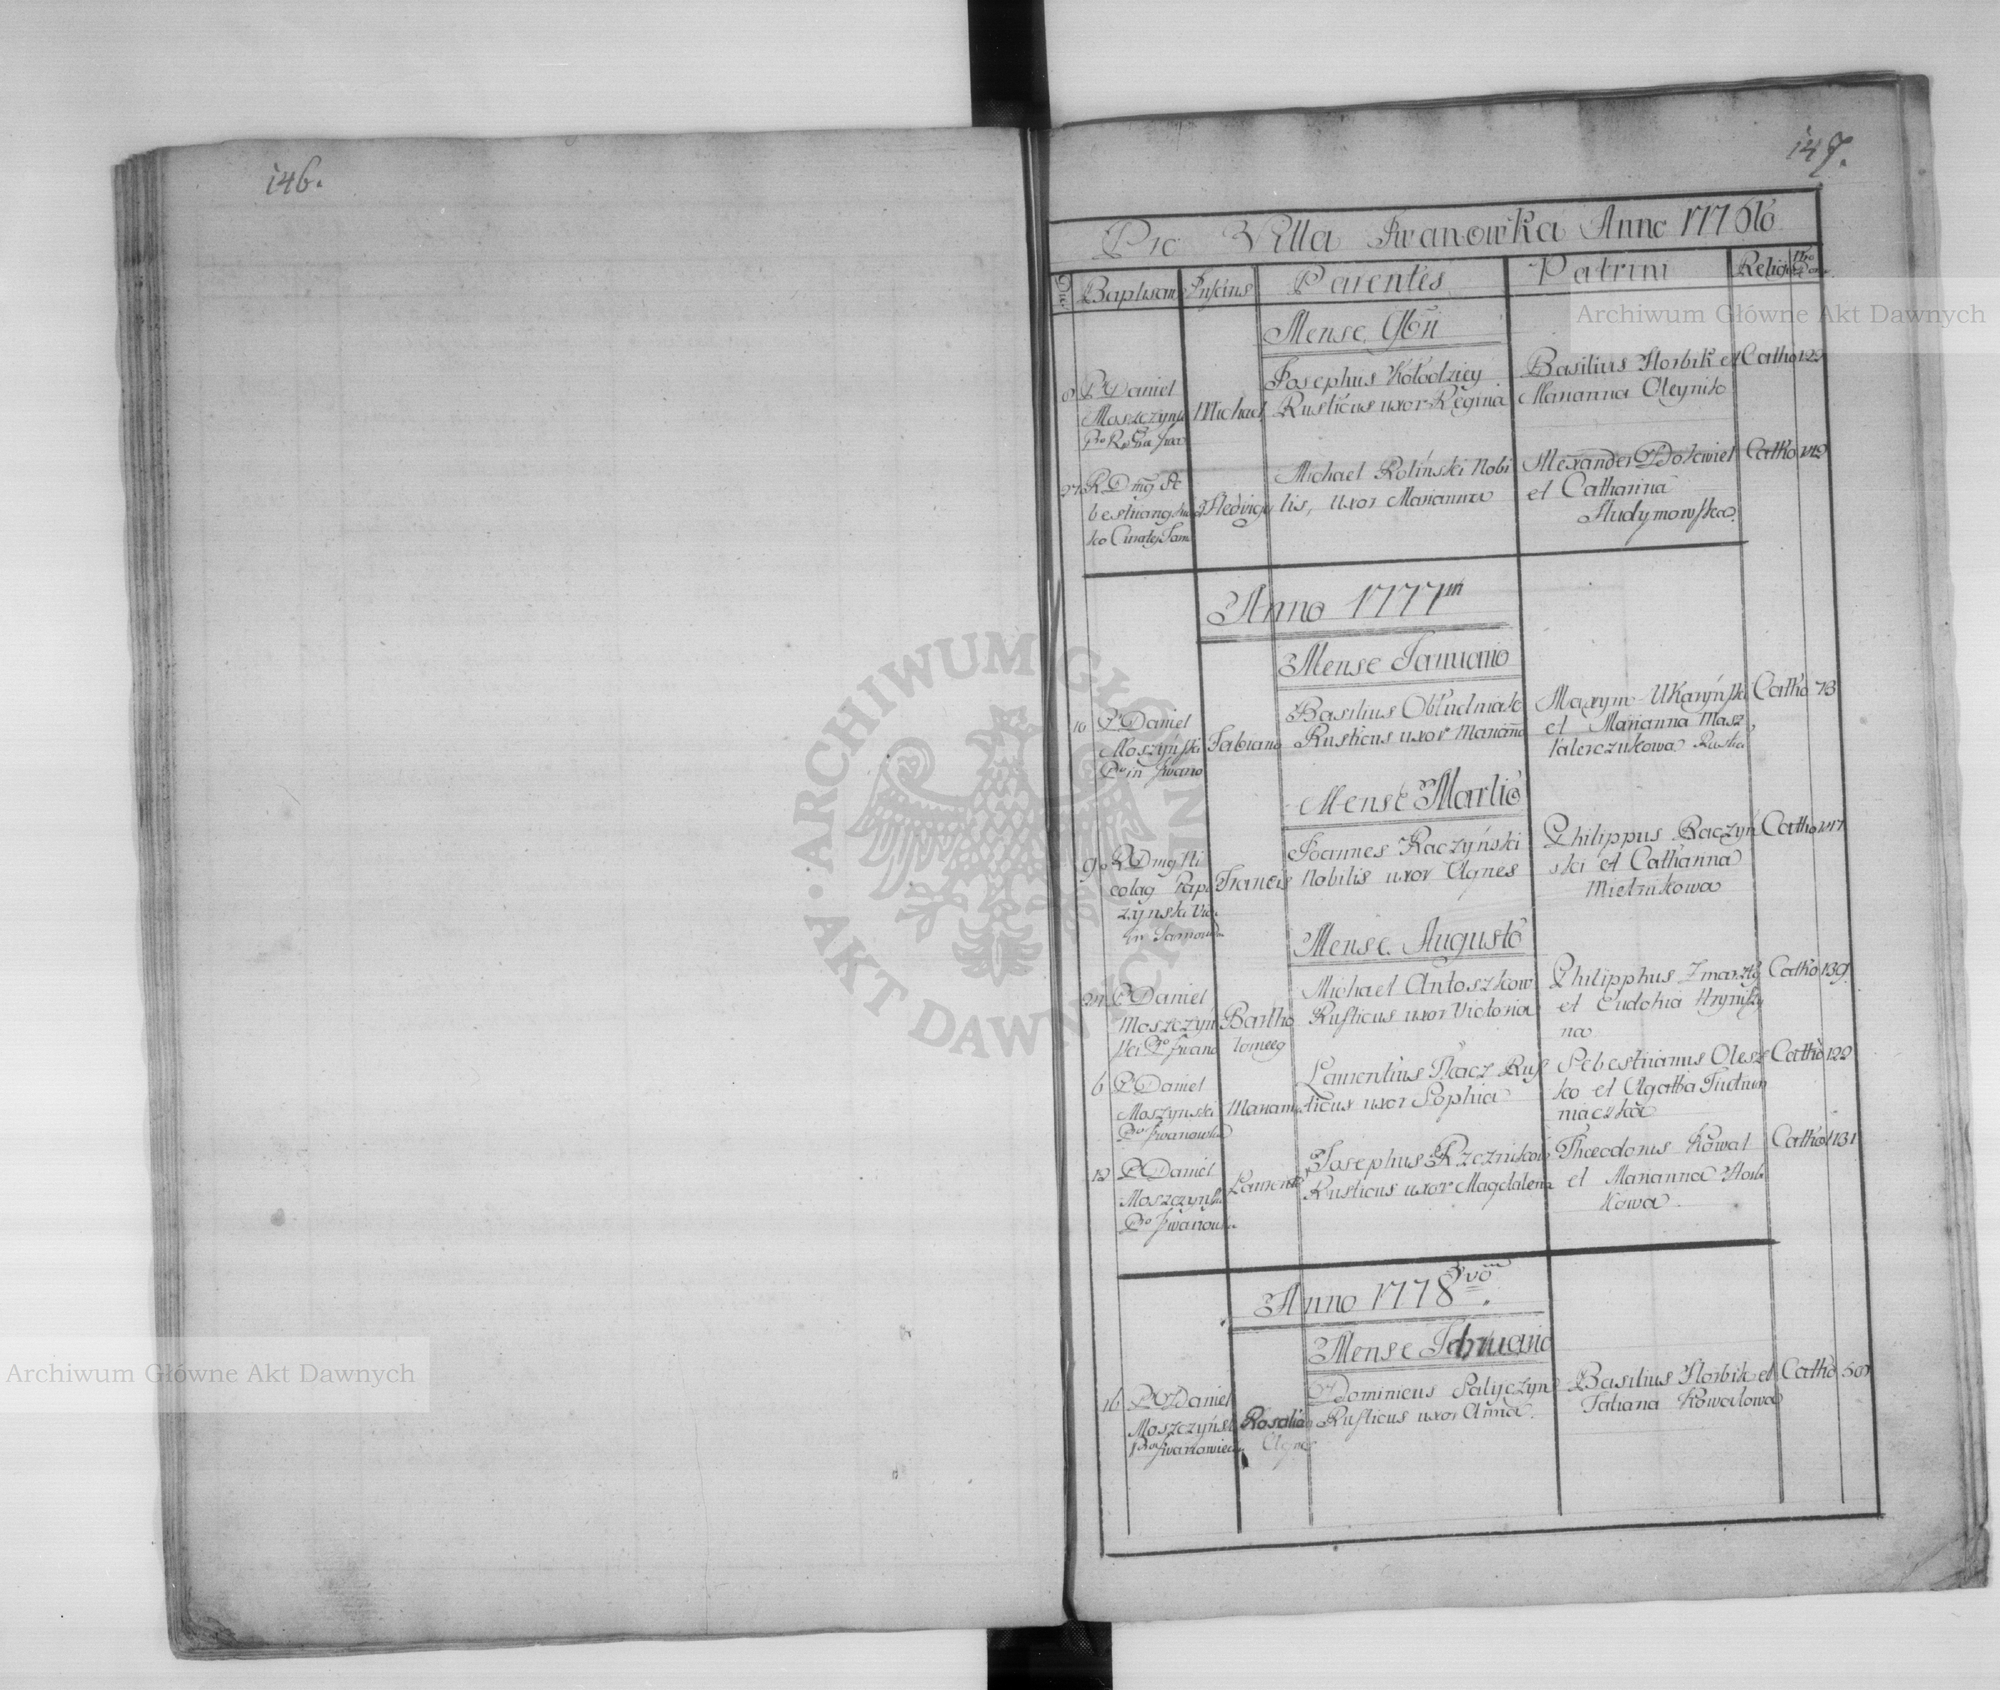 146.
147.
Pro Villa Iwanowka Anno 1776to
Die Baptisans Infans Parentes Patrini Religio Nro Dom
Mense 9bri
8 P Daniel
Moszczyns
Michael
Josephus Kołodziey
Rusticus uxor Regina
Basilius Horbik et
Marianna Oleynik
Catho 129
27 R D mg Se
bestyang
ko Curatg Tarn
Hedvigis
Michael Roliński Nobi
lis, uxor Marianna
Alexander Zdołowiel
et Catharina
Studymowska
Catho 142
Anno 1777m
Mense Januario
10 P Daniel
Moszyński
Pro in Iwano
Fabiano
Basilius Obłudniak
Rusticus uxor Marianna
Maxym Ukaryńsk
et Marianna Masz
talerczukowa Rustica
Catho 73
Mense Martio
9 R D mg Ni
colag Kap
zynski Vic
in Tarnoru
Francis
Joannes Raczyński
Nobilis uxor Agnes
Philippus Raczyń
ski et Catharina
Mielnikowa
Catho 147
Mense Augusto
24 P Daniel
Moszczyn
ski Pro Iwano
Bartho
lomeeg
Michael Antoszkow
Rusticus uxor Victoria
Philipphus Zmarzły
et Eudohia Hryniszy
na
Catho 139
6 P Daniel
Moszynski
Pro Iwanowka
Mariam
Laurentius Tkacz Rus
ticus uxor Sophia
Sebestrianus Olesz
ko et Agatha Futrun
niaczka
Catho 122
12 P Daniel
Moszczynsk
Pro Iwanow
Laurent
Josephus Rzeznikow
Rusticus uxor Magdalena
Theodorus Kowal
et Marianna Horb
kowa
Catho 131
Anno 1778vo
Mense Februario
16 P Daniel
Moszczyńsk
Pro Iwanowiec
Rosalia
Agnes
Dominicus Saliyczyn
Rusticus uxor Anna
Basilius Horbik et
Tatiana Kowalowa
Catho
Archiwum Główne Akt Dawnych
Archiwum Główne Akt Dawnych
ARCHIWUM GŁÓWNE AKT DAWNYCH